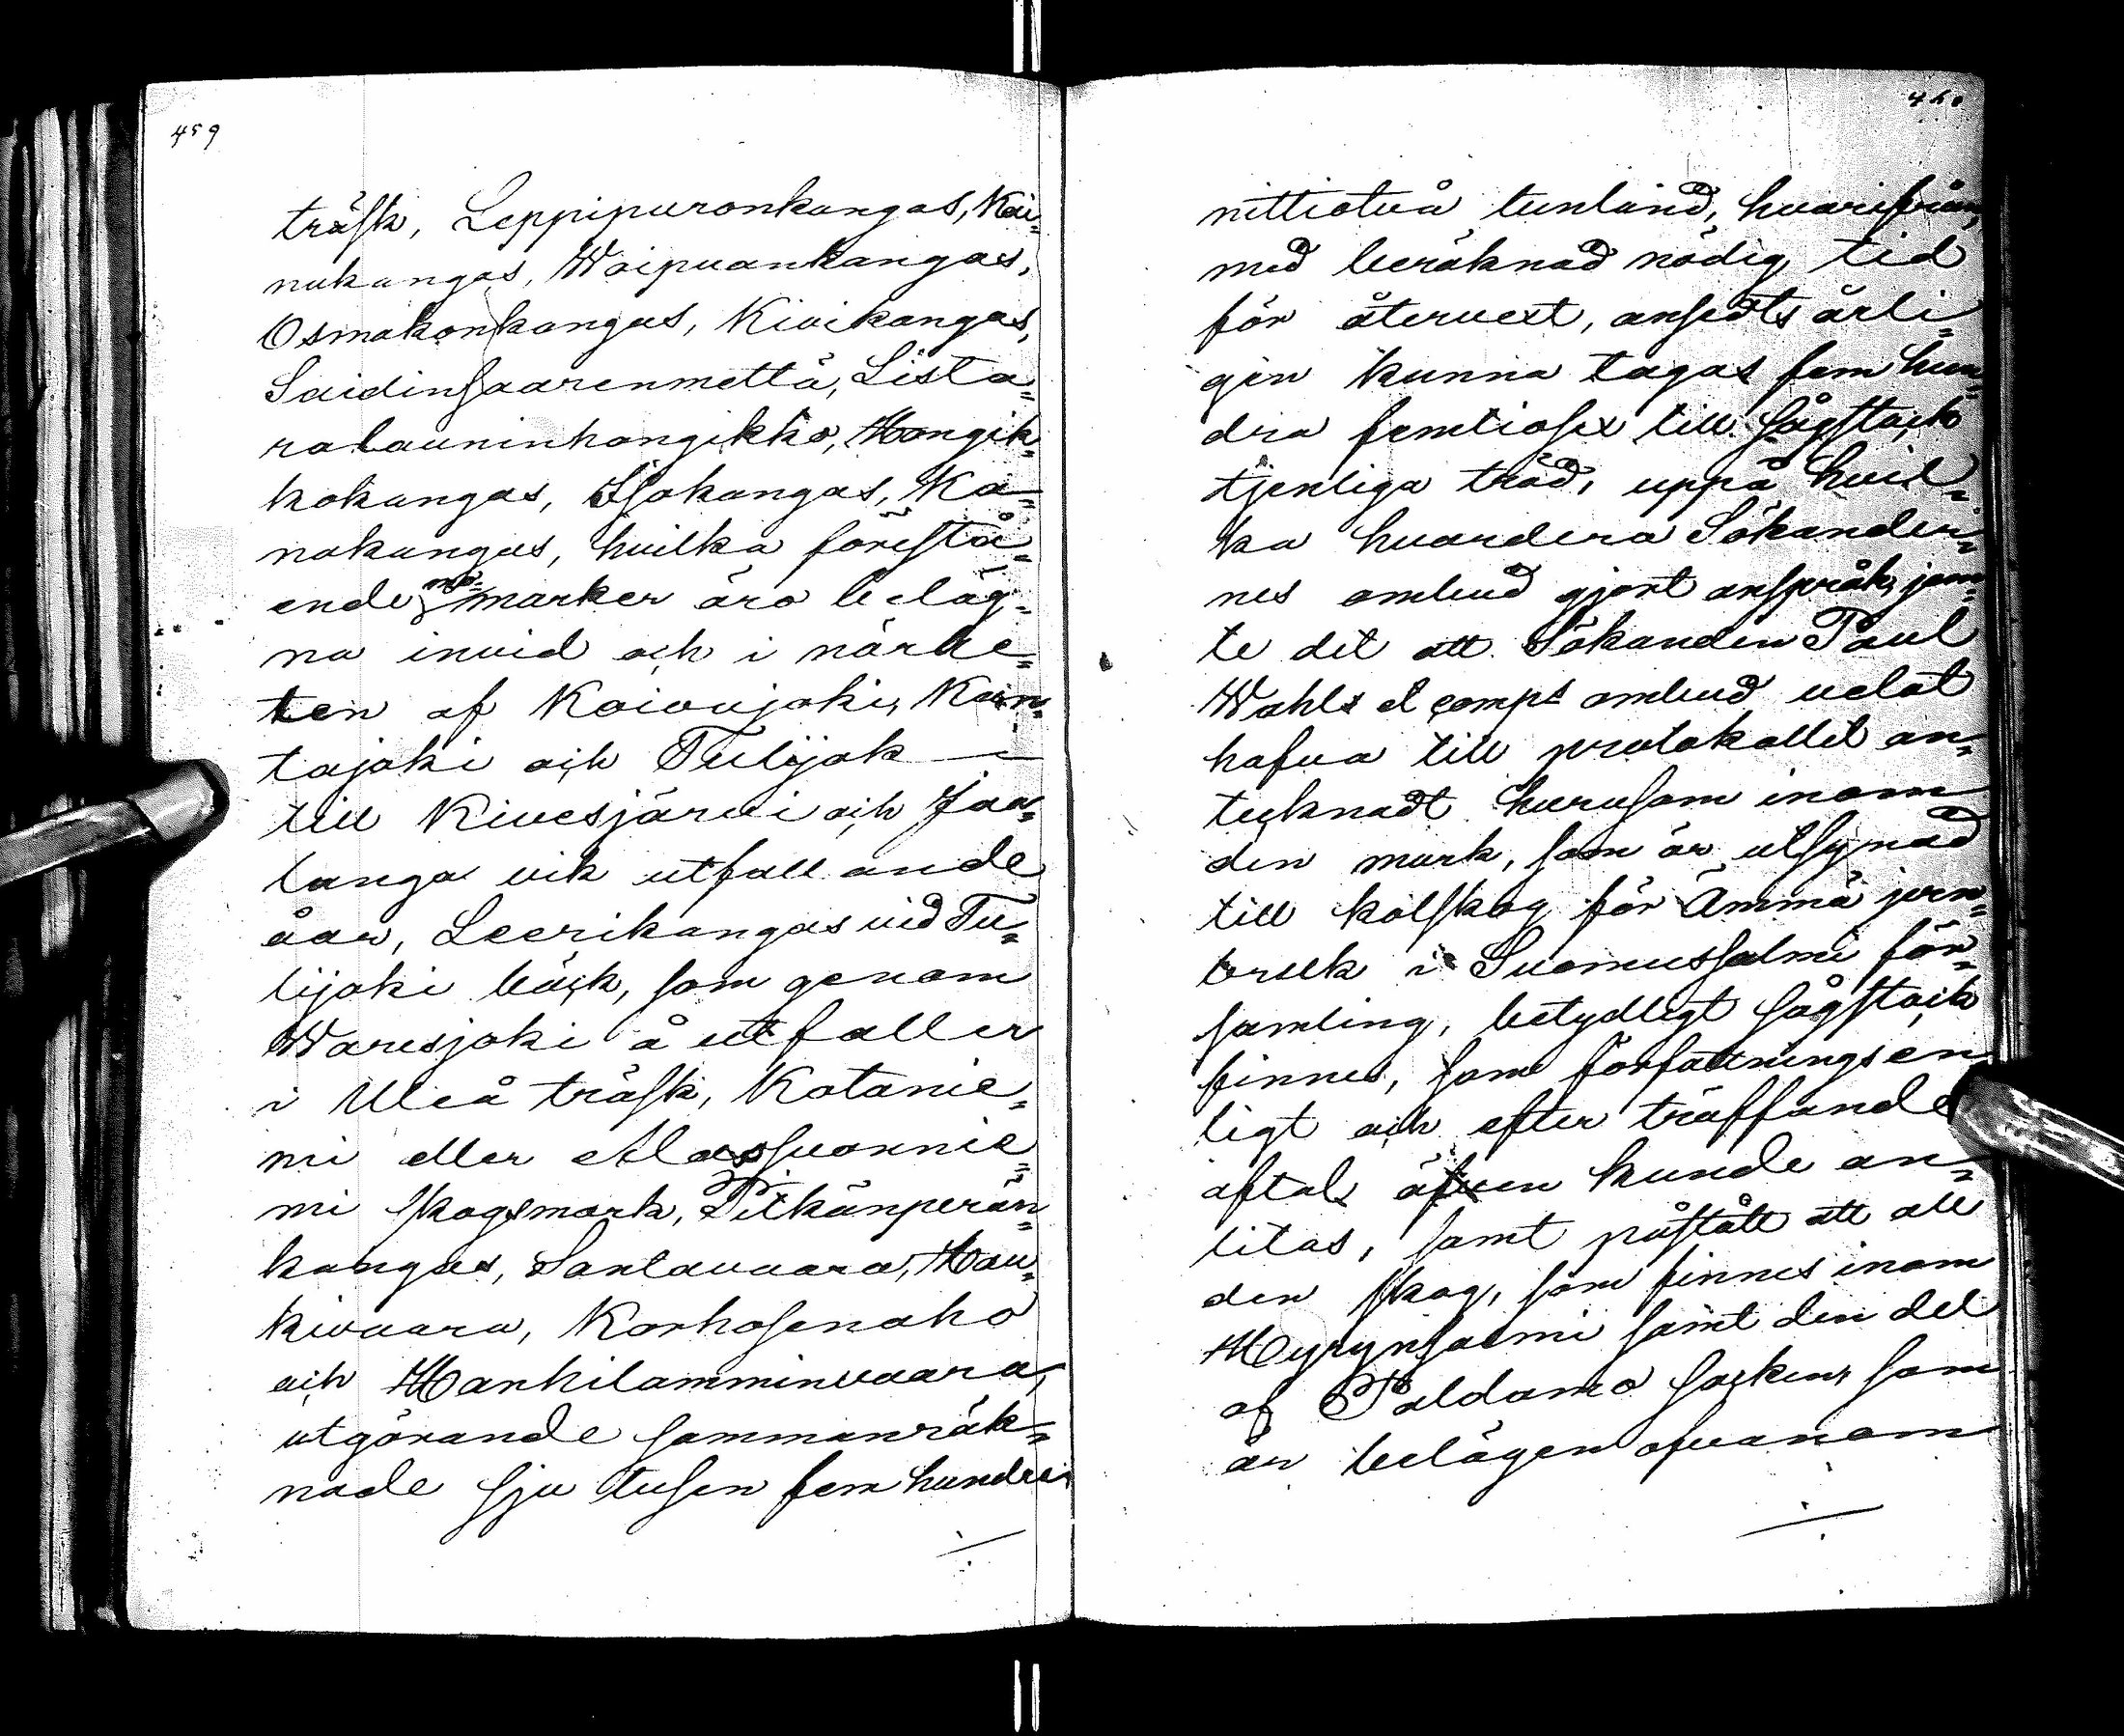 459
träsk, Leppipuronkangas, Kai=
nukangas, Waipuankangas,
Osmakonkangas, Kivikangas,
Saidinsaarenmettä, Lista=
ralauninhongikko, Hongik=
kokangas, Isokangas, Ka=
nakangas, hvilka förestå=
ende mo=marker äro beläg=
na invid och i närhe=
ten af Koivujoki, Kon=
tajoki och Tulijok
till Kivesjärvi och Jaa=
langa vik utfallande
åar, Leerikangas vid Tu=
lijoki bäck, som genom
Waresjoki å utfaller
i Uleå träsk, Kotanie=
mi eller Alassuonnie=
mi skogsmark, Pitkänperän=
kangas, Santavaara, Hau=
kivaara, Korhosenaho
och Hanhilamminvaara,
utgörande sammanräk=
nade sju tusen fem hundra
460
nittiotvå tunland, hvarifrån,
med beräknad nödig tid
för återvext, ansedts årli=
gen kunna tagas fem hun=
dra femtiosex till sågstock
tjenliga träd, uppå hvil=
ka hvardera Sökander=
nes ombud gjort anspråk, jem=
te det att Sökanden Paul
Wahls et comps ombud velat
hafva till protokollet an=
tecknadt hurusom inom
den mark, som är utsynad
till kolskog för Ämmä jern=
bruk i Suomussalmi för=
samling, betydligt sågstock
finnes, som författningsen
ligt och efter träffande
aftal äfven kunde an=
litas, samt påstått att all
den skog, som finnes inom
Hyrynsalmi samt den del
af Paldamo socken, som
är belägen ofvanom